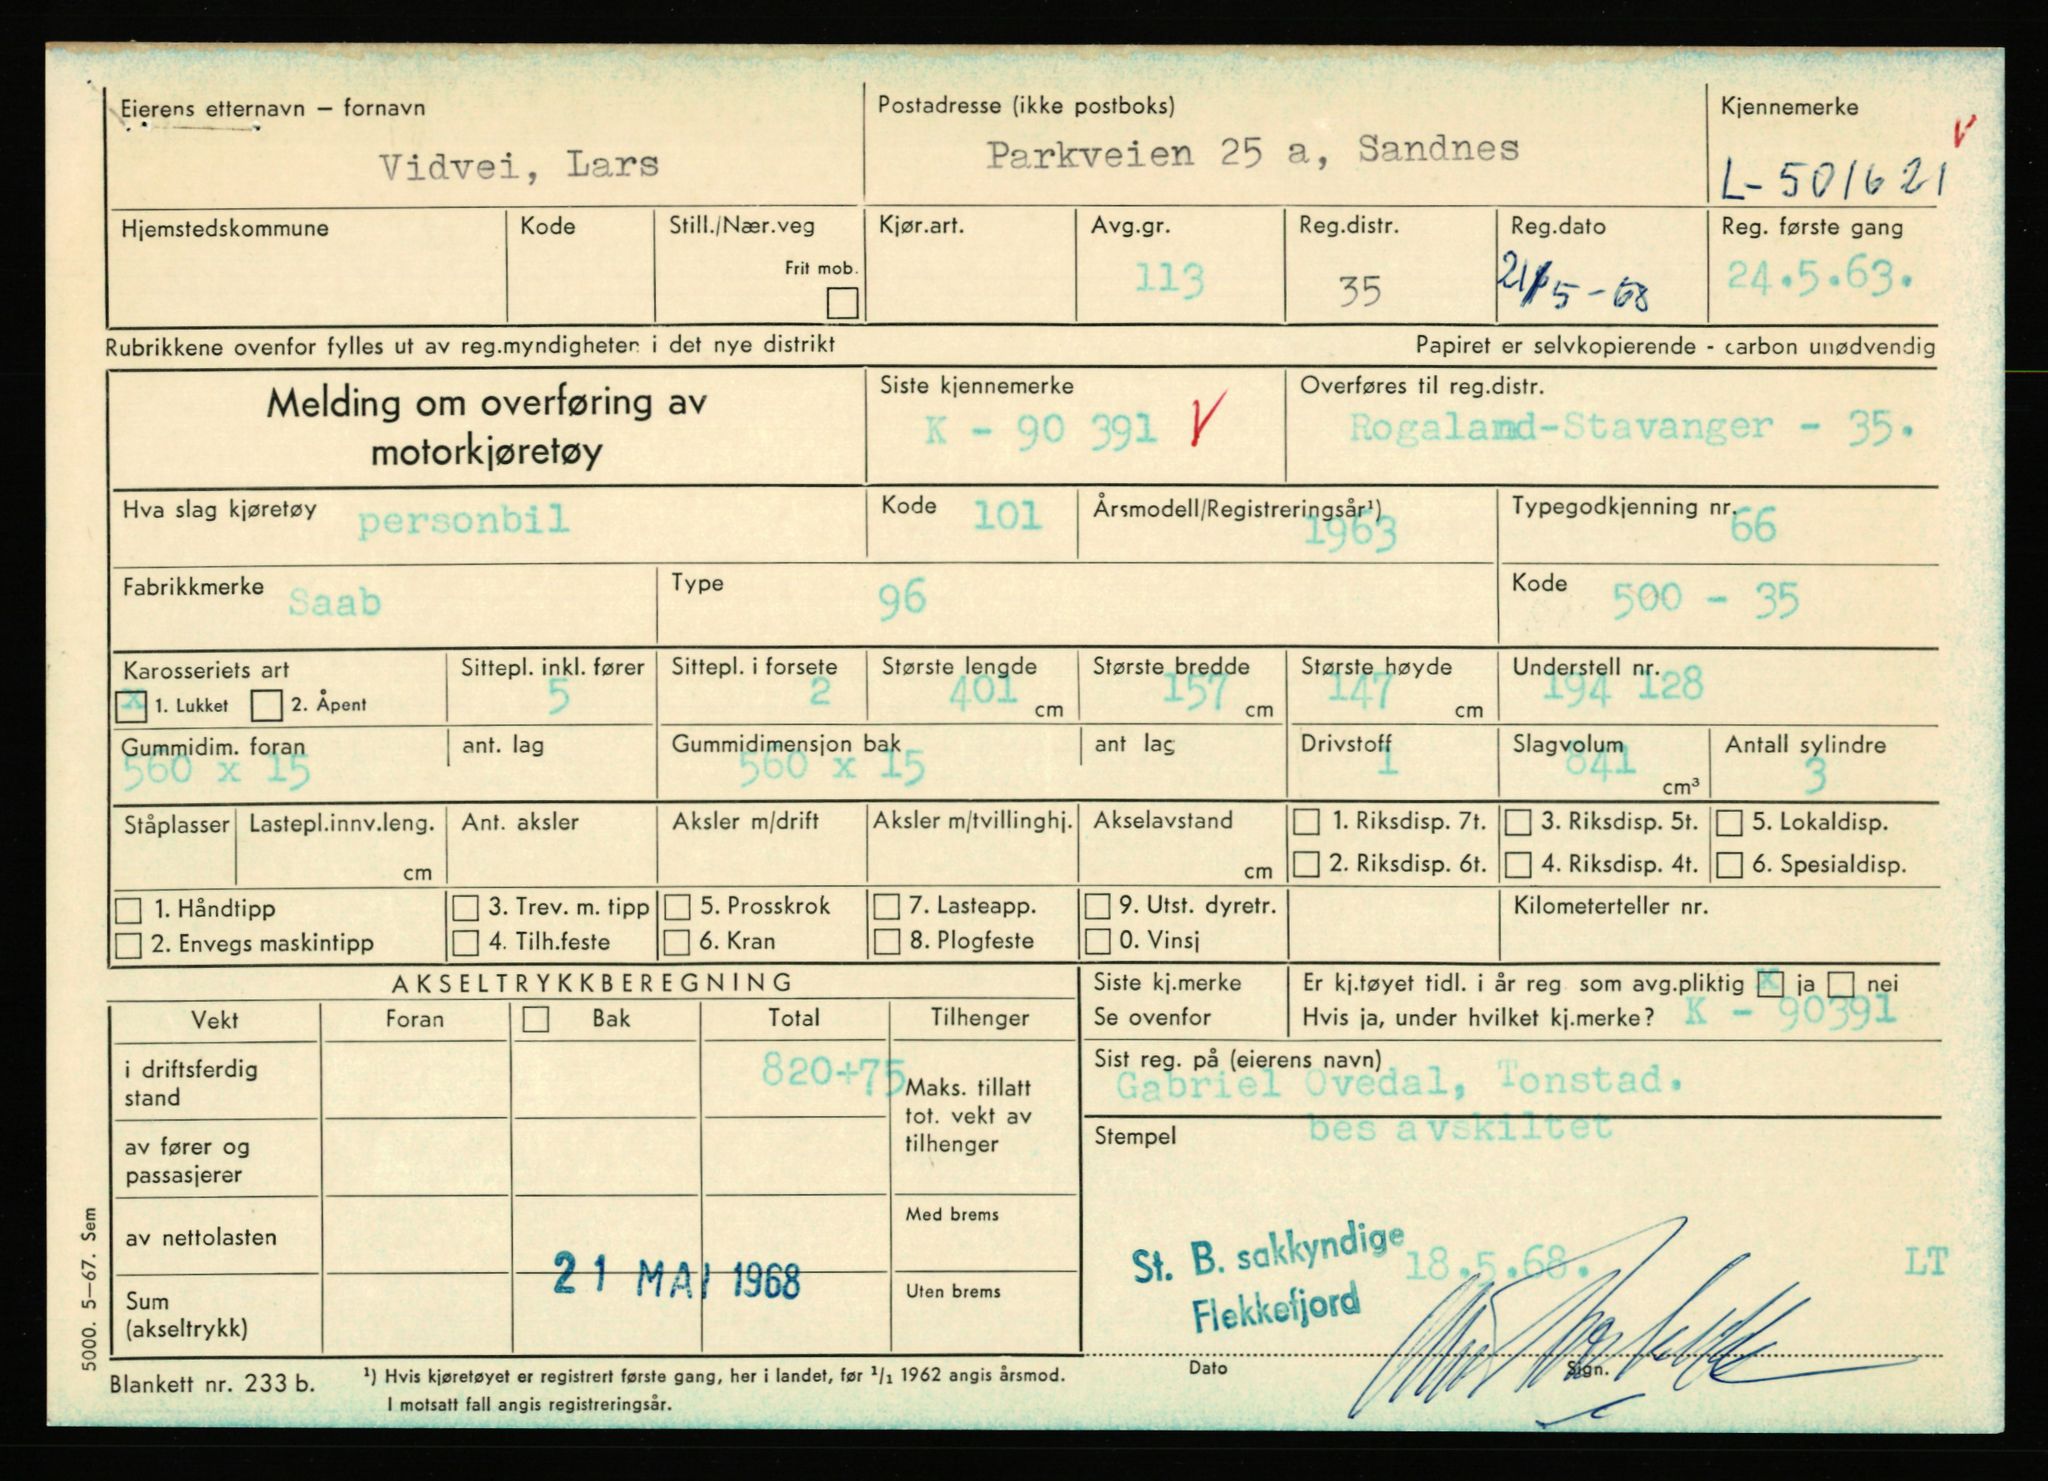 Eierens etternavn – fornavn
Vidvei, Lars
Postadresse (ikke postboks)
Parkveien 25 a, Sandnes
Kjennemerke
V
L-501621
Hjemstedskommune
Kode
Still./Nær.veg
Frit mob.
Kjør.art.
Avg.gr.
113
Reg.distr.
35
Reg.dato
21/5-68
Reg. første gang
24.5.63.
Rubrikkene ovenfor fylles ut av reg.myndigheten i det nye distrikt
Papiret er selvkopierende - carbon unødvendig
Melding om overføring av
motorkjøretøy
Siste kjennemerke
K - 90 391 V
Overføres til reg.distr.
Rogaland-Stavanger - 35.
Hva slag kjøretøy
personbil
Kode
101
Årsmodell/Registreringsår¹)
1963
Typegodkjenning nr.
66
Fabrikkmerke
Saab
Type
96
Kode
500 - 35
Karosseriets art
x 1. Lukket 2. Åpent
Sittepl. inkl. fører
5
Sittepl. i forsete
2
Største lengde
401 cm
Største bredde
157 cm
Største høyde
147 cm
Understell nr.
194 128
Gummidim. foran
560 x 15
ant. lag
Gummidimensjon bak
560 x 15
ant lag
Drivstoff
1
Slagvolum
841 cm³
Antall sylindre
3
Ståplasser
Lastepl.innv.leng.
cm
Ant. aksler
Aksler m/drift
Aksler m/tvillinghj.
Akselavstand
cm
1. Riksdisp. 7t.
2. Riksdisp. 6t.
3. Riksdisp. 5t.
4. Riksdisp. 4t.
5. Lokaldisp.
6. Spesialdisp.
1. Håndtipp
2. Envegs maskintipp
3. Trev. m. tipp
4. Tilh.feste
5. Prosskrok
6. Kran
7. Lasteapp.
8. Plogfeste
9. Utst. dyretr.
0. Vinsj
Kilometerteller nr.
AKSELTRYKKBEREGNING
Vekt
Foran
Bak
Total
Tilhenger
i driftsferdig
stand
820+75
Maks. tillatt
tot. vekt av
tilhenger
av fører og
passasjerer
av nettolasten
Med brems
Sum
(akseltrykk)
Uten brems
21 MAI 1968
Siste kj.merke
Se ovenfor
Er kj.tøyet tidl. i år reg som avg.pliktig x ja nei
Hvis ja, under hvilket kj.merke? K - 90391
Sist reg. på (eierens navn)
Gabriel Ovedal, Tonstad.
Stempel
bes avskiltet
St. B. sakkyndige
Flekkefjord
18.5.68.
LT
Dato
Sign.
5000. 5–67. Sem
Blankett nr. 233 b.
¹) Hvis kjøretøyet er registrert første gang, her i landet, før ¹/₁ 1962 angis årsmod.
I motsatt fall angis registreringsår.